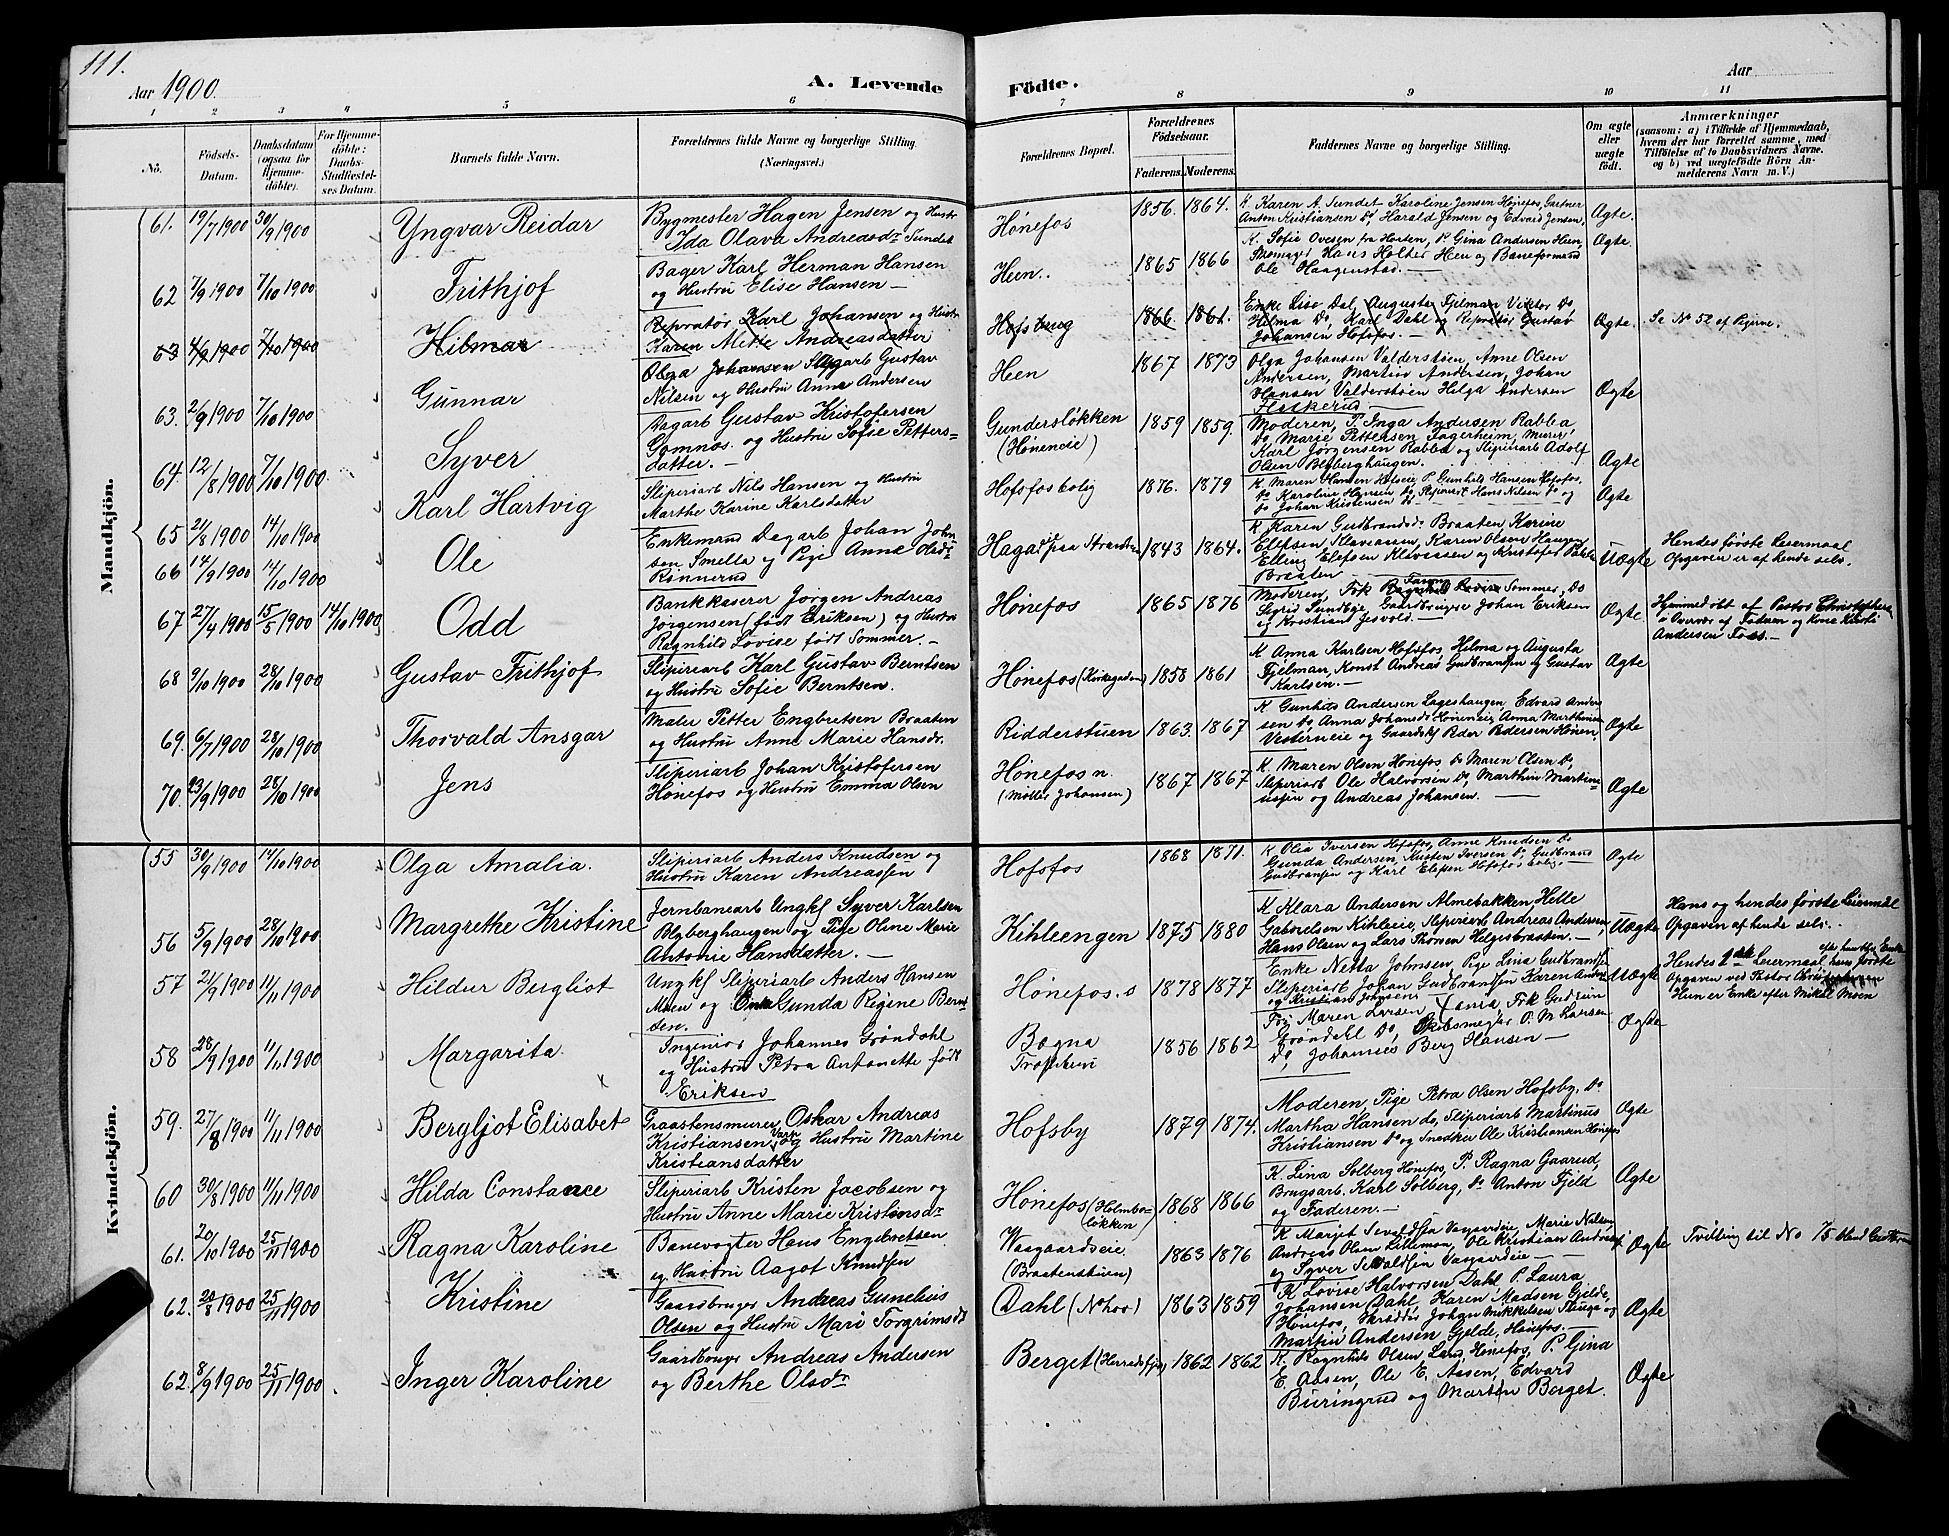 111.
Aar 1900.
A. Levende
Födte.
Aar
1 2 3 4 5 6 7 8 9 10 11
No.
Födsels-Datum.
Daabsdatum (ogsaa for Hjemmedöbte).
For Hjemmedöbte: Daabs-Stadfæstelses Datum.
Barnets fulde Navn.
Forældrenes fulde Navne og borgerlige Stilling. (Næringsvei.)
Forældrenes Bopæl.
Forældrenes Födselsaar.
Faderens. Moderens.
Faddernes Navne og borgerlige Stilling.
Om ægte eller uægte födt.
Anmærkninger
(saasom: a) i Tilfælde af Hjemmedaab, hvem der har forrettet samme, med Tilföielse af to Daabsvidners Navne. og b) ved uægtefödte Börn Anmelderens Navn m. V.)
Mandkjön.
61. 19/7 1900 30/9 1900 Yngvar Reidar
Bygmester Hagen Jensen og Hustr
Ida Olava Andreasdr Sundet
Hønefos 1856. 1864.
K. Karen A. Sundet Karoline Jensen Hønefos, Gartner
Anton Kristiansen do, Harald Jensen og Edvard Jensen,
Ægte.
62 7/9 1900 7/10 1900 Frithjof
Bager Karl Herman Hansen
og Hustru Elise Hansen —
Heen.. 1865 1866
K. Sofie Ovesen fra Horten, P. Gina Andersen Heen,
Skomager Hans Holter Heen og Baneformand
Ole Haagenstad. —
Ægte
63 4/9 1900 7/10 1900 Hilmar
Repratør Karl Johansen og Hustr
Karen Mette Andreasdatter
Hofsbrug 1866. 1861.
Enke Lise Dal, Augusta Fjelman Viktor do
Hilma do, Karl Dahl og Repratør Gustav
Johansen Hofsfos. —
Ægte. Se No 52 af Pigerne.
63. 2/9 1900 7/10 1900 Gunnar
Johansen Slagarb Gustav
Nilsen og Hustru Anna Andersen
Heen 1867 1873
Olga Johansen Valderstøen, Anne Olsen
Andersen, Martin Andersen, Johan
Hansen Valderstøen Helga Andersen
Flaskerud
Ægte
64. 12/8 1900 7/10 1900 Syver
Dagarb Gustav Kristofersen
Gomnos. og Hustru Sofie Petters-
datter. —
Gundersløkken
(Høneneie) 1859 1859.
Moderen, P. Inga Andersen Rabba,
do, Marie Pettersen Fagerheim, Murer
Karl Jørgensen Rabba og Sliperiarb Adolf
Olsen Blyberghaugen.
Ægte
65 21/8 1900 14/10 1900 Karl Hartvig
Sliperiarb Nils Hansen og Hustru
Marthe Karine Karlsdatter
Hofsfos bolig 1876. 1879
K. Maren Hansen Hofseie P. Gunhild Hansen Hofsfos,
do Karoline Hansen do, Sliperiarb Hans Nilsen do og
do Johan Kristensen do —
Ægte
66 14/9 1900 14/10 1900 Ole
Enkemand Dagarb Johan John
sen Smetta og Pige Anne Olsdr
Rønnerud
Haga paa Stranden 1843 1864.
K. Karen Gudbrandsdr Braaten, Karine
Elefsen Klavaasen, Karen Olsen Haugen
Elling Elefsen Klevaasen og Kristofer
Braaten —
Uægte
Hendes første Leiermaal
Opgaven er af hende selv.
67 27/4 1900 15/5 1900 14/10 1900 Odd
Bankkaserer Jørgen Andreas
Jørgensen (født Eriksen) og Hustru
Ragnhild Lovise født Sommer. —
Hønefos 1865 1876
Moderen, Frk Fanny Sommer, do
Sigrid Sundbye, Gaardbruger Johan Eriksen
og Kristian Jesvold. —
Ægte
Hjemmedøbt af Pastor Christophersen
i Overvær af Fadren og Kone Kirsti
Andersen Foss. —
68 9/10 1900 28/10 1900 Gustav Frithjof
Sliperiarb Karl Gustav Berntsen
og Hustru Sofie Berntsen.
Hønefos (Kirkegaden) 1858 1861
K Anna Karlsen Hofsfos, Hilma og Augusta
Fjelman, Konst Andreas Gudbransen og Gustav
Karlsen. —
Ægte
69. 6/7 1900 28/10 1900 Thorvald Ansgar
Maler Petter Engbretsen Braaten
og Hustru Anne Marie Hansdr.
Ridderstuen 1863. 1867
K Gunhild Andersen Lageshaugen, Edvard Ander
sen do Anna Johansdr Høneneie, Anna Marthinsen
Vesterneie og Gaardskf Peder Pedersen Hønen.
Ægte
70. 23/9 1900 28/10 1900 Jens
Sliperiarb Johan Kristofersen
Hønefos og Hustru Emma Olsen
Hønefos n.
(Møller Johansen) 1867 1867
K. Maren Olsen Hønefos do Maren Olsen do
Sliperiarb Ole Halvorsen do, Marthin Martin-
iusen og Andreas Johansen. —
Ægte
Kvindekjön.
55 30/9 1900 14/10 1900 Olga Amalia.
Sliperiarb Anders Knudsen og
Hustru Karen Andreassen
Hofsfos 1868 1871.
K. Olia Iversen Hofsfos, Anne Knudsen do
Gunda Andersen, Kristen Iversen do, Gudbrand
Gudbransen og Karl Elefsen Hofsfos bolig. —
Ægte
56 5/9 1900 28/10 1900 Margrethe Kristine
Jernbanearb Ungkf Syver Karlsen
Blyberghaugen og Pige Oline Marie
Antonie Hansdatter. —
Kihleengen 1875 1880
K Klara Andersen Almebakken Helle
Gabrielsen Kihleeie, Sliperiarb Andreas Andersen,
Hans Olsen og Lars Thoresen Helgesbraaten. —
Uægte
Hans og hendes første Leiermaal
Opgaven af hende selv..
57 21/9 1900 11/11 1900 Hildur Bergliot
Ungkf Sliperiarb Anders Hansen
Moen og Enke Gunda Regine Bernt-
sen.
Hønefos. s 1878 1877
Enke Netta Johnsen Pige Lina Gudbransen
Sliperiarb Johan Gudbransen Karen Anders
og Kristian Johnsen
Uægte
Hendes 1ste Leiermaal
Opgaven ved Pastor
Hun er Enke efter Mikal Moen
58 28/9 1900 11/11 1900 Margarita.
Ingeniør Johannes Grøndahl
og Hustru Petra Antonette født
Eriksen
Bægna
Træsliberi 1856 1862
Fru Maren Larsen Frk Gudrun
Grøndahl do, Skibsmegler P. M Larsen
do, Johannes Berg Hansen —
Ægte
59. 27/8 1900 11/11 1900 Bergljot Elisabet
Graastensmurer Oskar Andreas
Kristiansen og Hustru Martine
Kristiansdatter
Hofsby 1879 1874.
Moderen, Pige Petra Olsen Hofsby, do
Martha Hansen do, Sliperiarb Martinus
Kristiansen do og Snedker Ole Kristiansen Hønefos
Ægte
60 30/8 1900 11/11 1900 Hilda Constance
Sliperiarb Kristen Jacobsen og
Hustru Anne Marie Kristensdr
Hønefos (Holmbo-
løkken) 1868 1866
K. Lina Solberg Hønefos, P. Ragna Gaarud,
Brugsarb. Karl Solberg, do Anton Fjeld
og Faderen. —
Ægte
61. 20/10 1900 25/11 1900 Ragna Karoline
Banevogter Hans Engebretsen
og Hustru Aagot Knudsen
Vaagaardseie.
(Braatenstuen) 1863 1876
K Marjet Sevaldsen Vaagardeie, Marie Nielsen
Andreas Olsen Lillemon, Ole Kristian Andersen
og Syver Sevaldsen Vaagaardeie —
Ægte
Tvilling til No 75
62. 20/8 1900 25/11 1900 Kristine
Gaardbruger Andreas Gunelius
Olsen og Hustru Mari Torgrimsdr
Dahl 1863 1859
K Lovise Halvorsen Dahl P. Laura
Johansen Dahl, Karen Madsen Gjelde,
Hønefos, Skrædder Johan Mikkelsen og
Martin Andersen Gjelde, Hønefos. —
Ægte
62. 8/9 1900 25/11 1900 Inger Karoline
Gaardbruger Andreas Andersen
og Berthe Olsdr
Berget 1862 1862
K. Ragnhild Olsen Lund Hønefos, P. Gina
E. Aasen, Ole E. Aasen, Edvard
Buringrud og Martin Berget.
Ægte